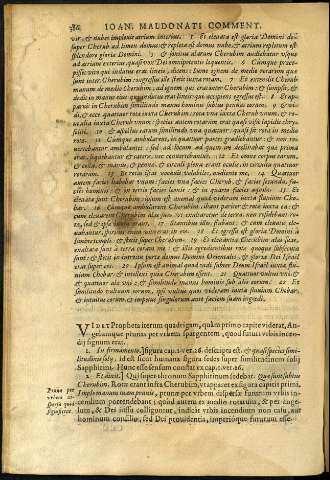 IOAN. MALDONATI COMMENT.
vir. & nubes impleuit atrium interius. 4 Et eleuata est gloria Domini de
super Cherub ad limen domus: & repleta est domus nube, & atrium repletum est
splendore gloriæ Domini. 5 & sonitus alarum Cherubim audiebatur vsque
ad atrium exterius, quasi vox Dei omnipotentis loquentis. 6 Cumque præce-
pisset viro qui indutus erat lineis, dicens: Sume ignem de medio rotarum quæ
sunt inter Cherubim: ingressus ille stetit iuxta rotam. 7 & extendit Cherub
manum de medio Cherubim, ad ignem qui erat inter Cherubim: & sumpsit, &
dedit in manus eius qui indutus erat lineis: qui accipiens egressus est. 8 Et appa-
ruit in Cherubim similitudo manus hominis subtus pennas eorum. 9 & vi-
di, & ecce quatuor rotæ iuxta Cherubim: rota vna iuxta Cherub vnum, & ro-
ta alia iuxta Cherub vnum: species autem rotarum erat quasi visio lapidis chryso-
lithi. 10 & aspectus earum similitudo vna quatuor: quasi sit rota in medio
rotæ. 11 Cumque ambularent, in quatuor partes gradiebantur: & non re-
uertebantur ambulantes: sed ad locum ad quem ire declinabat quæ prima
erat, sequebantur & ceteræ, nec conuertebantur. 12 Et omne corpus earum,
& colla, & manus, & pennæ, & circuli plena erant oculis, in circuitu quatuor
rotarum. 13 Et rotas istas vocauit volubiles, audiente me. 14 Quatuor
autem facies habebat vnum: facies vna facies Cherub, & facies secunda, fa-
cies hominis: & in tertio facies leonis: & in quarto facies aquilæ. 15 Et
eleuata sunt Cherubim: ipsum est animal quod videram iuxta fluuium Cho-
bar. 16 Cumque ambularent Cherubim, ibant pariter & rotæ iuxta ea: &
cum eleuarent Cherubim alas suas vt exaltarentur de terra, non residebant ro-
tæ, sed & ipsæ iuxta erant. 17 Stantibus illis, stabant: & cum eleuatis ele-
uabantur, spiritus enim vitæ erat in eis. 18 Et egressa est gloria Domini à
limine templi: & stetit super Cherubim. 19 Et eleuantia Cherubim alas suas,
exaltata sunt à terra coram me: & illis egredientibus rotæ quoque subsecutæ
sunt: & stetit in introitu portæ domus Domini Orientalis, & gloria Dei Israel
erat super ea. 20 Ipsum est animal quod vidi subter Deum Israel iuxta flu-
uium Chobar: & intellexi quia Cherubim essent. 21 Quatuor vultus vni, &
& quatuor alæ vni: & similitudo manus hominis sub alis eorum. 22 Et
similitudo vultuum eorum, ipsi vultus quos videram iuxta fluuium Chobar,
& intuitus eorum & impetus singulorum ante faciem suam ingredi.
VIDET Propheta iterum quadrigam, quam primo capite viderat, An-
gelumque prunas per vrbem spargentem, quod futuri vrbis incen-
dij signum erat.
1. In firmamento.] figura cap. 1. ver. 26. descripta est. & quasi species simi-
litudinis solij. id est sicut humana figura sedes super similitudinem lapidis
Sapphirini. Hunc esse sensum constat ex cap. 1. ver. 26.
2. Et dixit.] Qui super thronum Sapphirinum sedebat. Quæ sunt subtus
Cherubim. Rotæ erant infra Cherubim, vt apparet ex figura capitis primi.
Imple manum tuam prunis, prunæ per vrbem dispersæ futurum vrbis in-
cendium portendebant; quod autem ex auxilio rotarum, & per ange-
lum, & Dei iussu colliguntur, indicat vrbis incendium non casu, aut
hominum consilio, sed Dei prouidentia, imperioque futurum esse.
Prunæ per
vrbem di-
spersæ quid
significent.